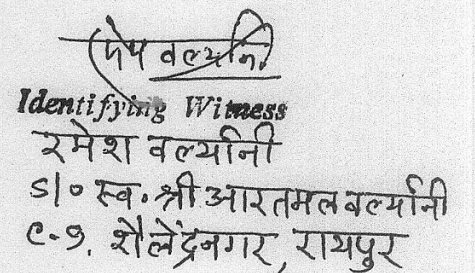 वल्यानी
Identifying Witness
रमेश वर्ल्यानी
S/० स्व. श्री आरतमल वर्ल्यानी
शैलेंद्रनगर, रायपुर